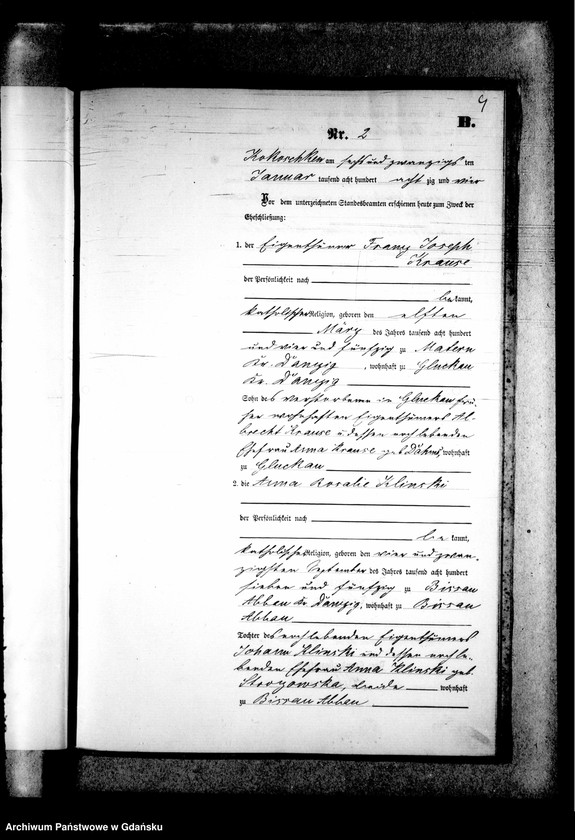 9
B.
Nr. 2
Kokoschken am sechs und zwanzigsten
Januar tausend acht hundert acht zig und vier
Vor dem unterzeichneten Standesbeamten erschienen heute zum Zweck der
Eheschließung:
1. der Eigenthümer Franz Joseph
Krause
der Persönlichkeit nach
be kannt,
katholischer Religion, geboren den elften
März des Jahres tausend acht hundert
und vier und fünfzig zu Matern
Kr. Danzig, wohnhaft zu Gluckau
Kr. Danzig
Sohn des verstorbenen in Gluckau frü-
her wohnhaften Eigenthümers Al-
brecht Krause u dessen noch lebenden
Ehefrau Anna Krause geb Dähms, wohnhaft
zu Gluckau
2. die Anna Rosalie Klinski
der Persönlichkeit nach
be kannt,
katholischer Religion, geboren den vier und zwan-
zigsten September des Jahres tausend acht hundert
sieben und fünfzig zu Bissau
Abbau Kr. Danzig, wohnhaft zu Bissau
Abbau
Tochter des noch lebenden Eigenthümers
Johann Klinski und dessen noch le-
benden Ehefrau Anna Klinski geb.
beide wohnhaft
zu Bissau Abbau
Archiwum Państwowe w Gdańsku